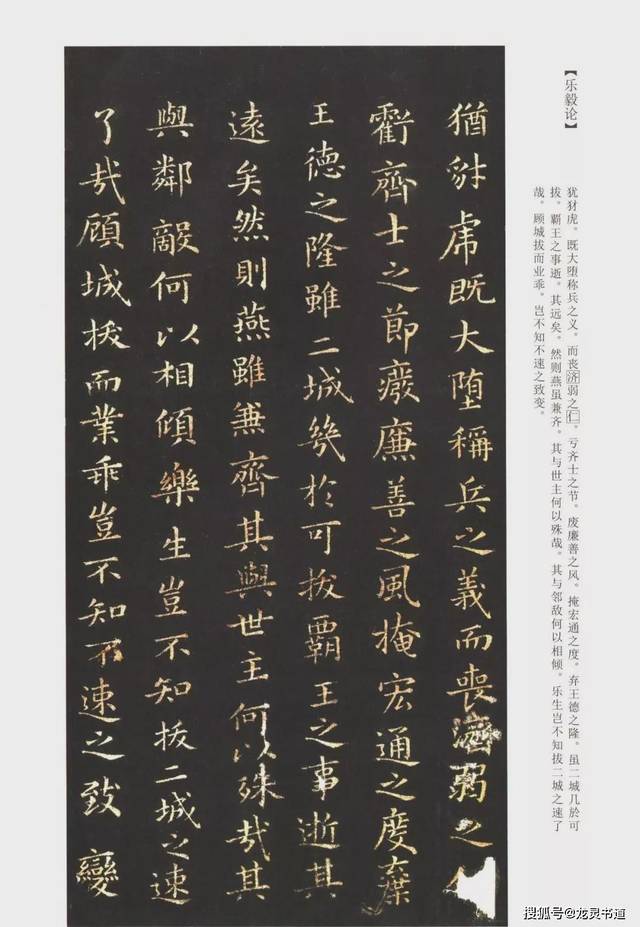 【乐毅论】
犹豺虎。既大堕称兵之义。而丧济弱之仁。亏齐士之节。废廉善之风。掩宏通之度。弃王德之隆。虽二城几於可
拔。覇王之事逝。其远矣。然则燕虽兼齐。其与世主何以殊哉。其与邻敌何以相倾。乐生岂不知拔二城之速了
哉。顾城拔而业乖。岂不知不速之致变。
猶豺虎既大堕稱兵之義而喪濟弱之
虧齊士之節癈廉善之風掩宏通之度棄
王德之隆雖二城幾於可拔覇王之事逝其
遠矣然則燕雖兼齊其與世主何以殊哉其
與鄰敵何以相傾樂生豈不知拔二城之速
了哉顧城拔而業乖豈不知不速之致變
搜狐号@龙灵书道